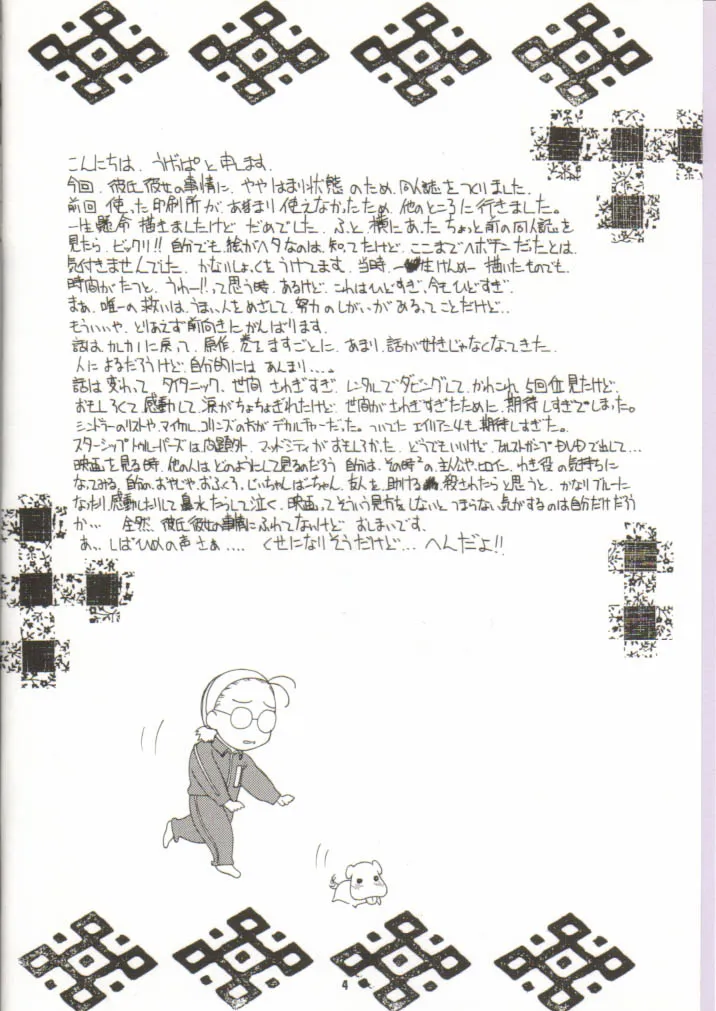 こんにちは、うげっぱと申します。
今回、彼氏彼女の事情に、ややはまり状態のため、同人誌をつくりました。
前回使った印刷所が、あまり使えなかったため、他のところに行きました。
一生懸命描きましたけど、だめでした。ふと、横にあった、ちょっと前の同人誌を
見たら、ビックリ!!自分でも絵がヘタなのは、知ってたけど、ここまでヘボデーだったとは、
気付きませんでした。かなりしょっくをうけてます。当時、一生けんめー描いたものでも、
時間がたつと、うわー!!、って思う時、あるけど、これはひどすぎ、今もひどすぎ。
まぁ、唯一の救いは、うまい人をめざして、努力のしがいがあるってことだけど..
もういいや、とりあえず前向きにがんばります。
話はカレカノに戻って、原作、巻をますごとに、あまり、話が好きじゃなくなてきた。
人によるだろうけど、自分的にはあんまり....。
話は変わって、タイタニック、世間さわぎすぎ、レンタルでダビングして、かれこれ5回位見たけど、
おもしろくて感動して、涙がちょちょぎれたけど、世間がさわぎすぎたために、期待しすぎてしまった。
シンドラーのリストや、マイケル・コリンズの方がデカルチャーだった。ついでに、エイリアン4も、期待しすぎた。
スターシップトゥルーパーズは問題外、マッドシティがおもしろかった。どうでもいいけど、フォレストガンプもDVDで出して...
映画を見る時、他の人はどのようにして見るのだろう、自分は、その時の主人公や、ヒロイン、わき役の気持ちに
なってみる、自分のおやじや、おふくろ、じいちゃんばーちゃん、友人を、助ける、殺されたらと思うと、かなりブルーに
なったり、感動したりして鼻水たらして泣く、映画ってそういう見方をしないと、つまらない気がするのは自分だけだろう
か… 全然、彼氏彼女の事情にふれてないけど、おしまいです。
あ、しばひめの声さぁ.... くせになりそうだけど... へんだよ!!
4